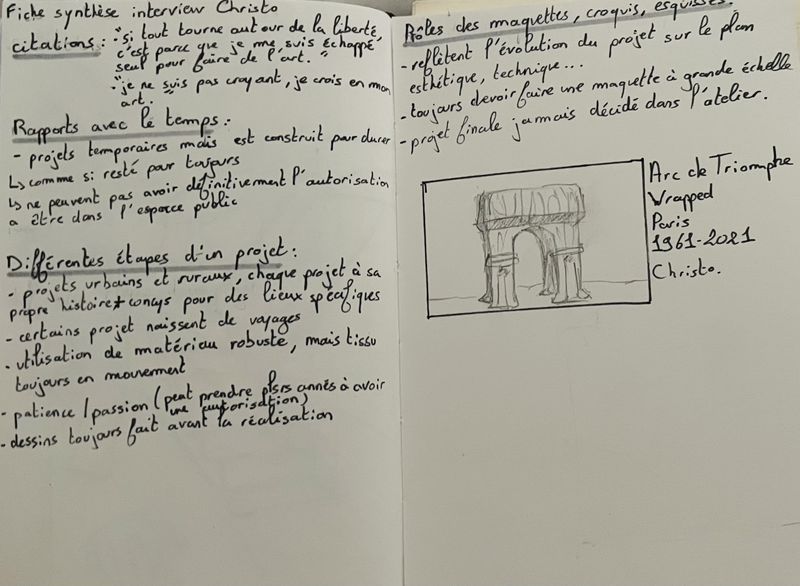 Fiche synthèse interview Christo
citations : "si tout tourne autour de la liberté,
c'est parce que je me suis échappé
seul pour faire de l'art."
- "je ne suis pas croyant, je crois en mon
art."
Rapports avec le temps :
- projets temporaires mais est construit pour durer
↳ comme si resté pour toujours
↳ ne peuvent pas avoir définitivement l'autorisation
a être dans l'espace public
Différentes étapes d'un projet :
- projets urbains et ruraux, chaque projet à sa
propre histoire + conçus pour des lieux spécifiques
- certains projet naissent de voyages
- utilisation de matériau robuste, mais tissu
toujours en mouvement
- patience / passion (peut prendre plsrs annés à avoir
une autorisation)
- dessins toujours fait avant la réalisation
Rôles des maquettes, croquis, esquisses :
- reflètent l'évolution du projet sur le plan
esthétique, technique...
- toujours devoir faire une maquette à grande échelle
- projet finale jamais décidé dans l'atelier.
Arc de Triomphe
Wrapped
Paris
1961-2021
Christo.